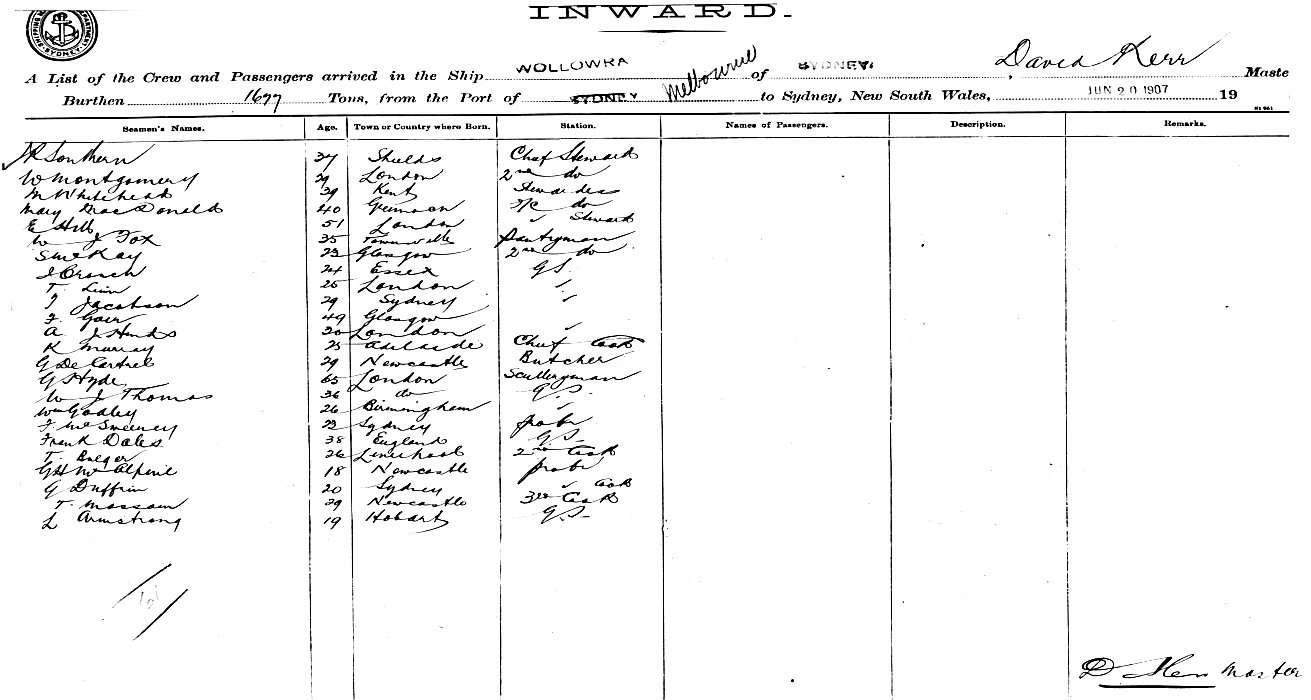 INWARD.
A List of the Crew and Passengers arrived in the Ship WOLLOWRA of SYDNEY, David Kerr Maste
Burthen 1697 Tons, from the Port of SYDNEY Melbourne to Sydney, New South Wales, JUN 20 1907 19
Seamen's Names. Age. Town or Country where Born. Station. Names of Passengers. Description. Remarks.
Southern 37 Shields Chief Steward
W Montgomery 29 London 2nd do
M Whitehead 39 Kent Stewardess
Mary MacDonald 40 do
E Hill 51 London Steward
W J Fox 35 Townsville Pantryman
S McKay 23 Glasgow 2nd do
J Crouch 24 Essex G.S.
T. 25 London
J Jacobson 29 Sydney
F. Gair 49 Glasgow
A J Hinds 20 London
K Murray 25 Adelaide Chief Cook
G De Cartret 29 Newcastle Butcher
G Hyde 65 London Sculleryman
W J Thomas 36 do G.S.
Wm Godley 26 Birmingham
F. McSweeney 23 Sydney
Frank Dales 38 England G.S.
T. Bulger 26 Liverpool 2nd Cook
GH McAlpine 18 Newcastle
G Duffrin 20 Sydney Cook
T. Mossom 29 Newcastle 3rd Cook
L Armstrong 19 Hobart G.S.
D Kerr Master